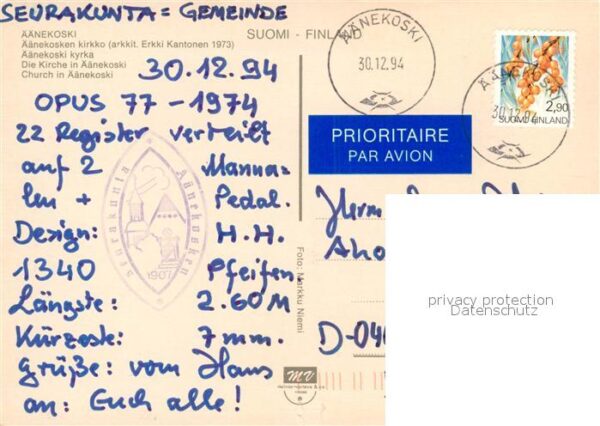 SEURAKUNTA = GEMEINDE
ÄÄNEKOSKI
SUOMI - FINLAND
Äänekosken kirkko (arkkit. Erkki Kantonen 1973)
Äänekoski kyrka
Die Kirche in Äänekoski
Church in Äänekoski
30.12.94
OPUS 77 - 1974
22 Register verteilt
auf 2 Manna-
len + Pedal.
Design: H.H.
1340 Pfeifen.
Längste: 2.60 M
Kürzeste: 7 mm.
Grüße: vom Hans
an: Euch alle!
seurakunta Äänekosken
1907
ÄÄNEKOSKI
30.12.94
ÄÄNEKOSKI
30.12.94
2,90
SUOMI FINLAND
PRIORITAIRE
PAR AVION
Foto: Markku Niemi
MV
D-040
privacy protection
Datenschutz